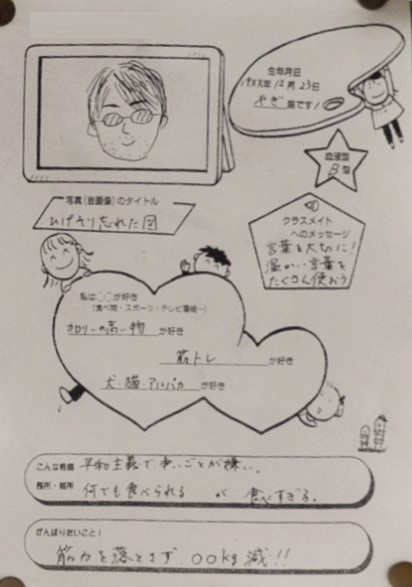 生年月日
19XX年 12月 23日
やぎ座です!
血液型
B型
写真(自画像)のタイトル
ひげそり忘れた図
クラスメイト
へのメッセージ
言葉を大切に!
温かい言葉を
たくさん使おう
私は○○が好き
(食べ物・スポーツ・テレビ番組…)
カロリーの高い物 が好き
筋トレ が好き
犬・猫・アルパカ が好き
こんな性格 平和主義で争いごとが嫌い。
長所・短所 何でも食べられる が 食べすぎる。
がんばりたいこと!
筋力を落とさず、○○kg減!!